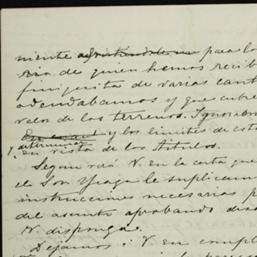 niente para lo
de quien hemos recib
finiquitos de varias cant
adeudabamos y que cubre
valor de los terrenos. Ignora
y los limites de est
y determina
en vista de los titulos.
Segun verá V. en la carta que
le suplicam
instrucciones necesarias p
del asunto aprobando des
V. disponga.
Dejamos á V. en compl